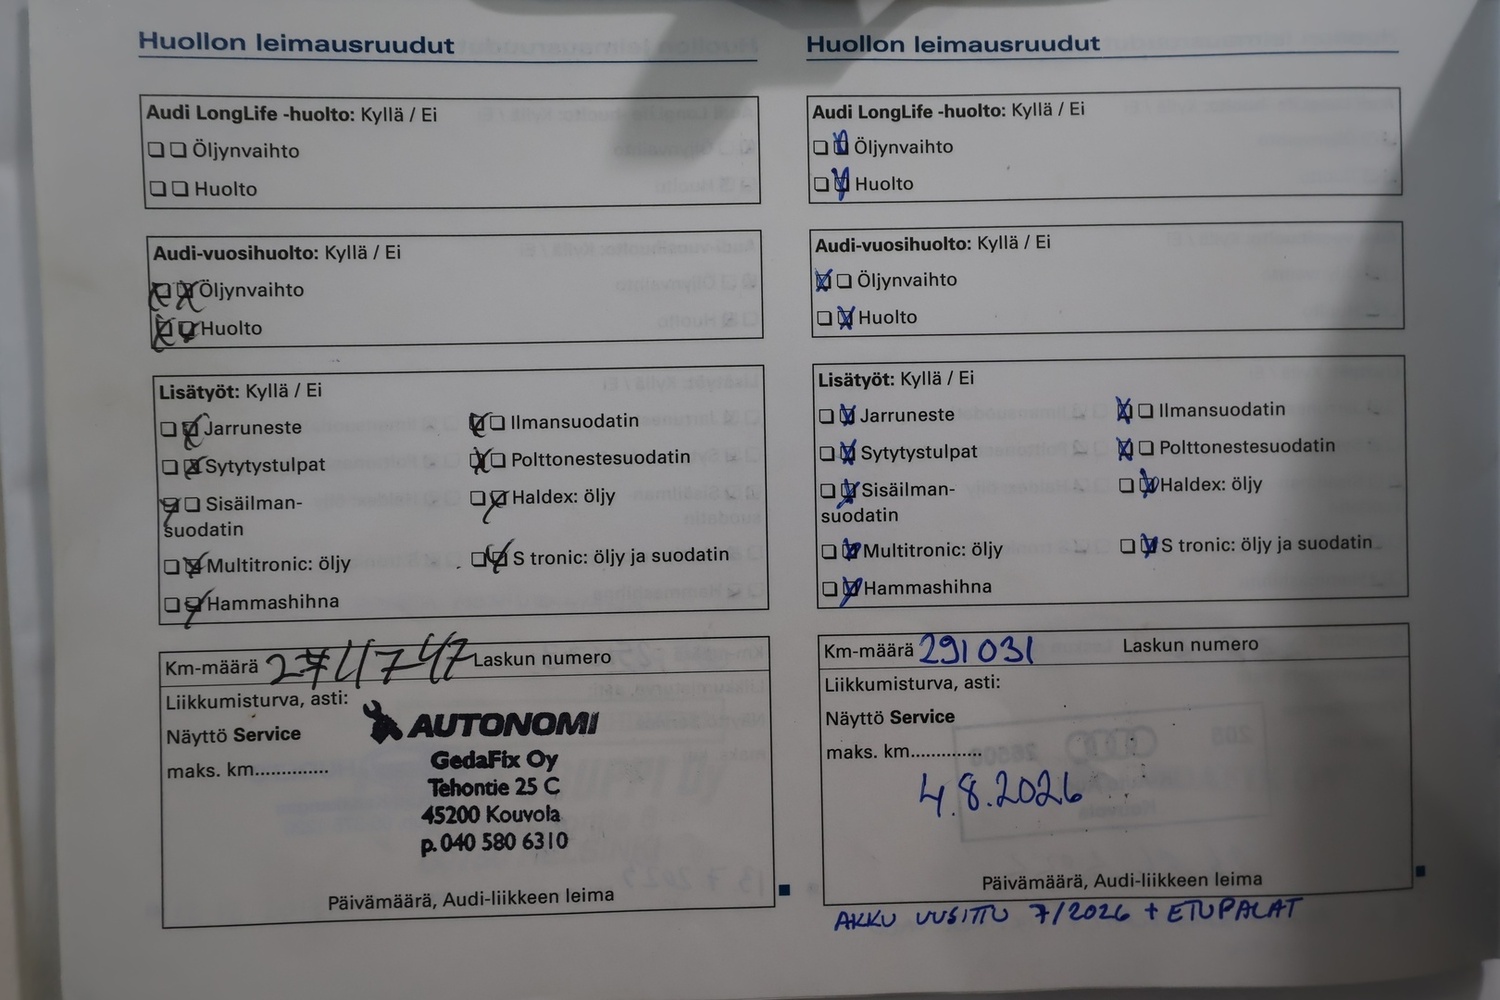 Huollon leimausruudut
Audi LongLife -huolto: Kyllä / Ei
Öljynvaihto
Huolto
Audi-vuosihuolto: Kyllä / Ei
Öljynvaihto
Huolto
Lisätyöt: Kyllä / Ei
Jarruneste
Ilmansuodatin
Sytytystulpat
Polttonestesuodatin
Sisäilman-
suodatin
Haldex: öljy
Multitronic: öljy
S tronic: öljy ja suodatin
Hammashihna
Km-määrä 271747 Laskun numero
Liikkumisturva, asti:
Näyttö Service
maks. km..............
AUTONOMI
GedaFix Oy
Tehontie 25 C
45200 Kouvola
p. 040 580 6310
Päivämäärä, Audi-liikkeen leima
Huollon leimausruudut
Audi LongLife -huolto: Kyllä / Ei
Öljynvaihto
Huolto
Audi-vuosihuolto: Kyllä / Ei
Öljynvaihto
Huolto
Lisätyöt: Kyllä / Ei
Jarruneste
Ilmansuodatin
Sytytystulpat
Polttonestesuodatin
Sisäilman-
suodatin
Haldex: öljy
Multitronic: öljy
S tronic: öljy ja suodatin
Hammashihna
Km-määrä 291 031 Laskun numero
Liikkumisturva, asti:
Näyttö Service
maks. km..............
4.8.2026
Päivämäärä, Audi-liikkeen leima
AKKU UUSITTU 7/2026 + ETUPALAT